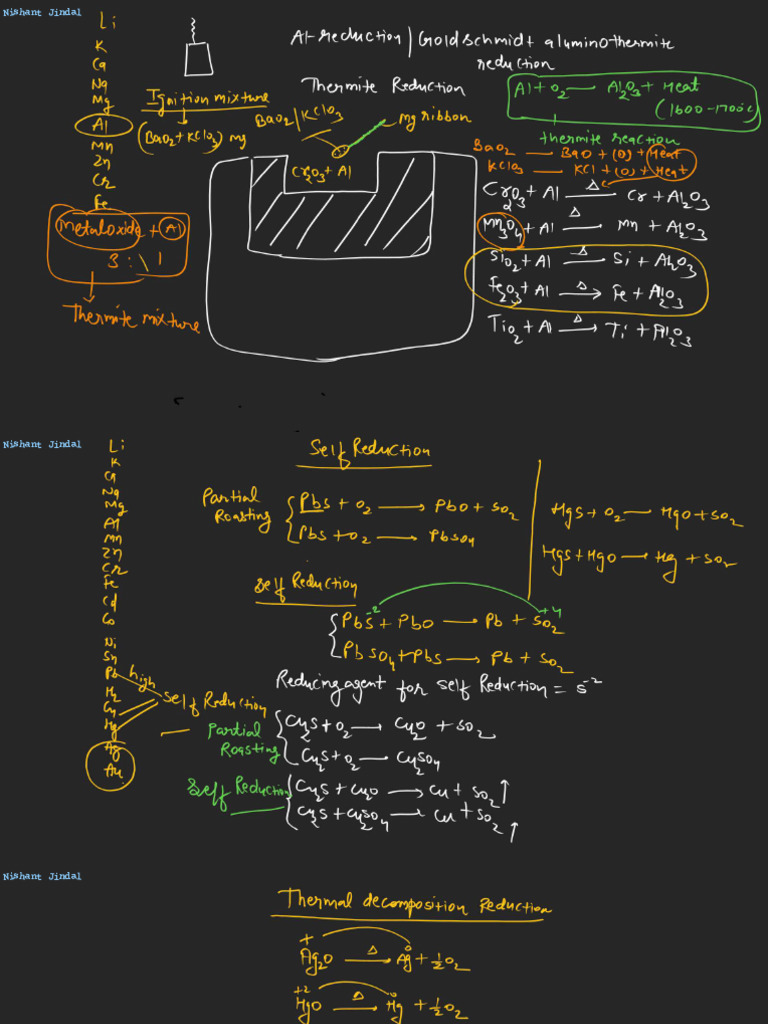 Nishant Jindal
Li
K
Ca
Na
Mg
Al
Mn
Zn
Cr
Fe
Metaloxide + Al
3 : 1
Thermite mixture
Ignition mixture
(BaO2 + KClO3) mg
Al-reduction | Goldschmidt alumino-thermite
reduction
Thermite Reduction
BaO2/KClO3
mg ribbon
Cr2O3 + Al
Al + O2 — Al2O3 + Heat
(1600-1700°C
thermite reaction
BaO2 → BaO + (O) + Heat
KClO3 → KCl + (O) + Heat
Cr2O3 + Al —Δ→ Cr + Al2O3
Mn3O4 + Al —Δ→ Mn + Al2O3
SiO2 + Al —Δ→ Si + Al2O3
Fe2O3 + Al —Δ→ Fe + Al2O3
TiO2 + Al —Δ→ Ti + Al2O3
Nishant Jindal
Li
K
Ca
Na
Mg
Al
Mn
Zn
Cr
Fe
Cd
Co
Ni
Sn
Pb
H2
Cu
Hg
Ag
Au
high
Self Reduction
Self Reduction
Partial
Roasting
PbS + O2 → PbO + SO2
PbS + O2 → PbSO4
HgS + O2 → HgO + SO2
HgS + HgO → Hg + SO2
Self Reduction
-2 +4
PbS + PbO → Pb + SO2
PbSO4 + PbS → Pb + SO2
Reducing agent for self Reduction = S-2
Partial
Roasting
Cu2S + O2 → Cu2O + SO2
Cu2S + O2 → Cu2SO4
Self Reduction
Cu2S + Cu2O → Cu + SO2↑
Cu2S + Cu2SO4 → Cu + SO2↑
Nishant Jindal
Thermal decomposition Reduction
+ 0
Ag2O —Δ→ Ag + ½O2
+2 0
HgO —Δ→ Hg + ½O2